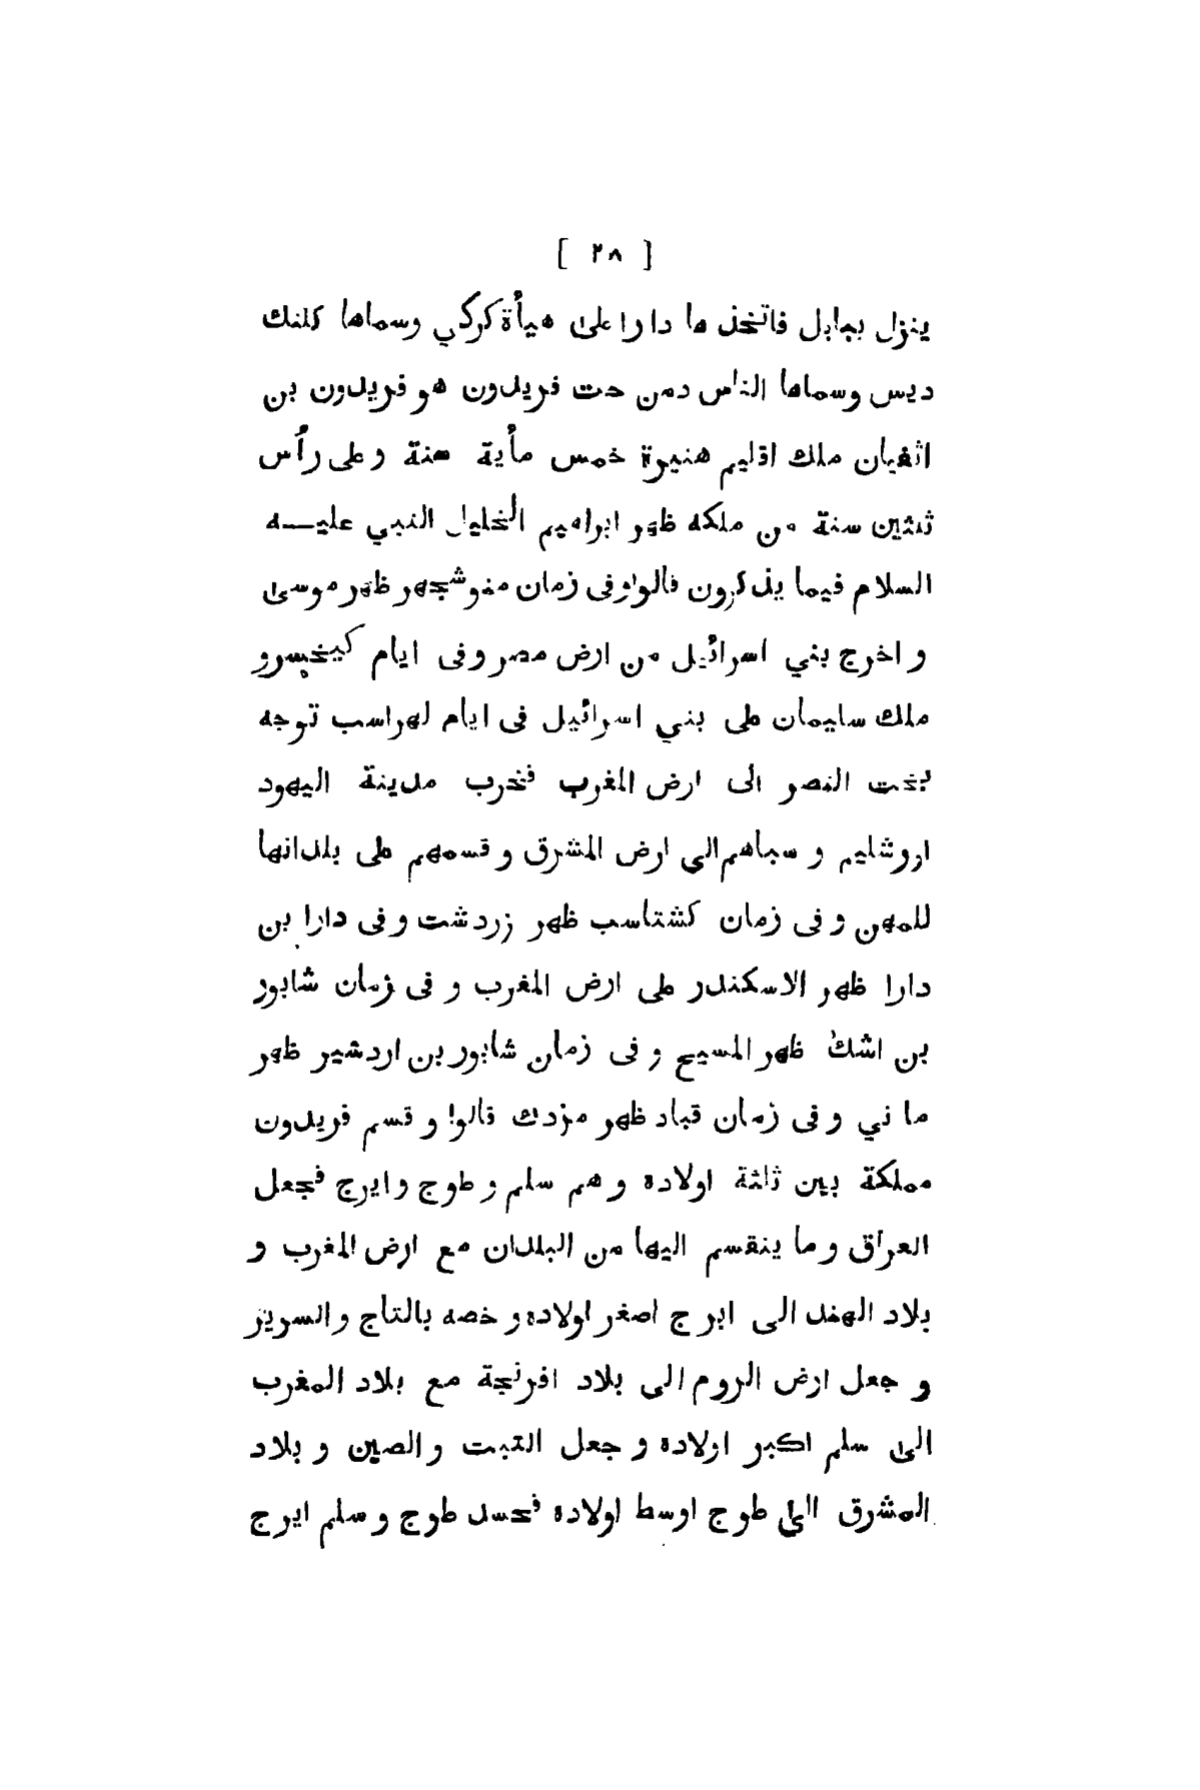 [ ٢٨ ]
ينزل ببابل فاتخذ ها دارا على هيأة كركي وسماها كلنك
ديس وسماها الناس دمن حت فريدون هو فريدون بن
اثغيان ملك اقليم هنيرة خمس مأية سنة و على رأس
ثلثين سنة من ملكه ظهر ابراهيم الخليل النبي عليه
السلام فيما يذكرون قالوا و فى زمان منوشجهر ظهر موسى
و اخرج بني اسرائيل من ارض مصر و فى ايام كيخسرو
ملك سليمان على بني اسرائيل فى ايام لهراسب توجه
بخت النصر الى ارض المغرب فخرب مدينة اليهود
اروشليم و سباهم الى ارض المشرق و قسمهم على بلدانها
للمهن و فى زمان كشتاسب ظهر زردشت و فى دارا بن
دارا ظهر الاسكندر على ارض المغرب و فى زمان شابور
بن اشك ظهر المسيح و فى زمان شابور بن اردشير ظهر
ما ني و فى زمان قباد ظهر مزدك قالوا و قسم فريدون
مملكة بين ثلثة اولاده و هم سلم و طوج و ايرج فجعل
العراق و ما ينقسم اليها من البلدان مع ارض المغرب و
بلاد الهند الى ايرج اصغر اولاده و خصه بالتاج و السرير
و جعل ارض الروم الى بلاد افرنجة مع بلاد المغرب
الى سلم اكبر اولاده و جعل التبت و الصين و بلاد
المشرق الى طوج اوسط اولاده فحسد طوج و سلم ايرج